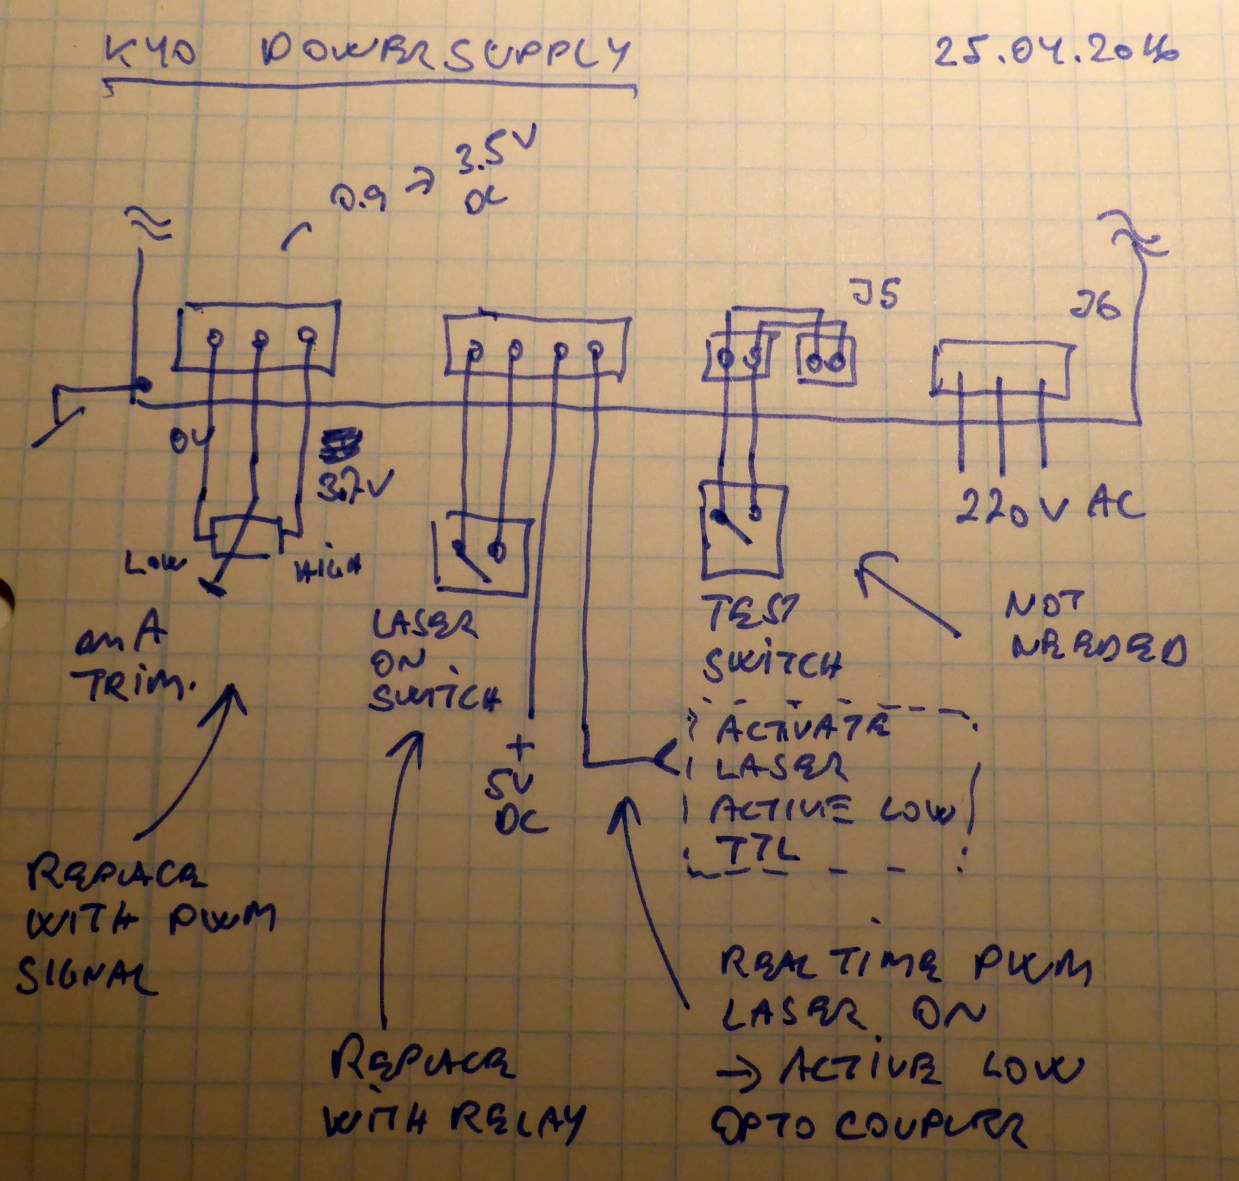 K40 POWERSUPPLY
25.04.2016
0.9 → 3.5V
DC
J5
J6
0V
3.7V
LOW
HIGH
220V AC
mA
TRIM.
LASER
ON
SWITCH
TEST
SWITCH
NOT
NEEDED
+
5V
DC
ACTIVATE
LASER
ACTIVE LOW
TTL
REPLACE
WITH PWM
SIGNAL
REPLACE
WITH RELAY
REAL TIME PWM
LASER ON
→ ACTIVE LOW
OPTO COUPLER